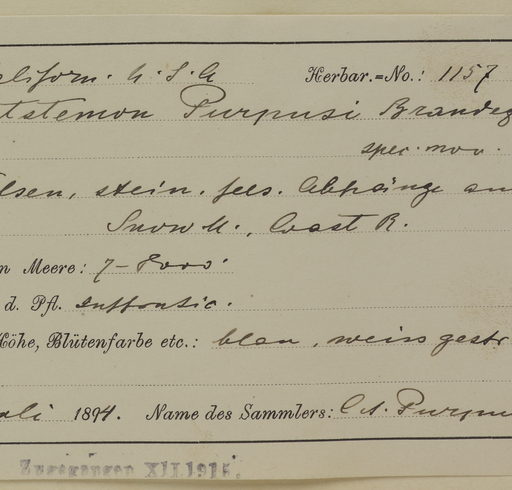 liforn. U. S. A Herbar.=No.: 1157
tstemon Purpusi Brandeg
spec. nov.
lsen, stein. fels. Abhänge am
Snow M., Coast R.
n Meere: 7–8000'
d. Pfl. suffrutic.
Höhe, Blütenfarbe etc.: blau, weiss gestr
li 1894. Name des Sammlers: C. A. Purpu
Zugegangen XII.1915.